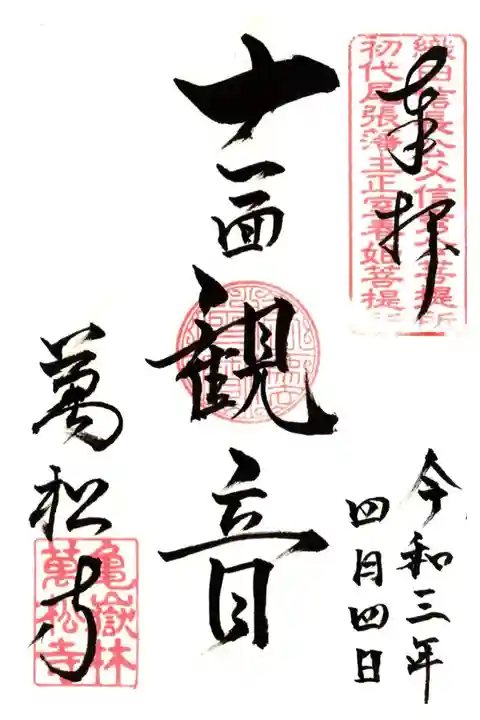 奉拝
織田信長公父信秀公菩提所
初代尾張藩主正室春姫菩提所
十一面観音
萬松寺
亀嶽林
萬松寺
令和三年
四月四日